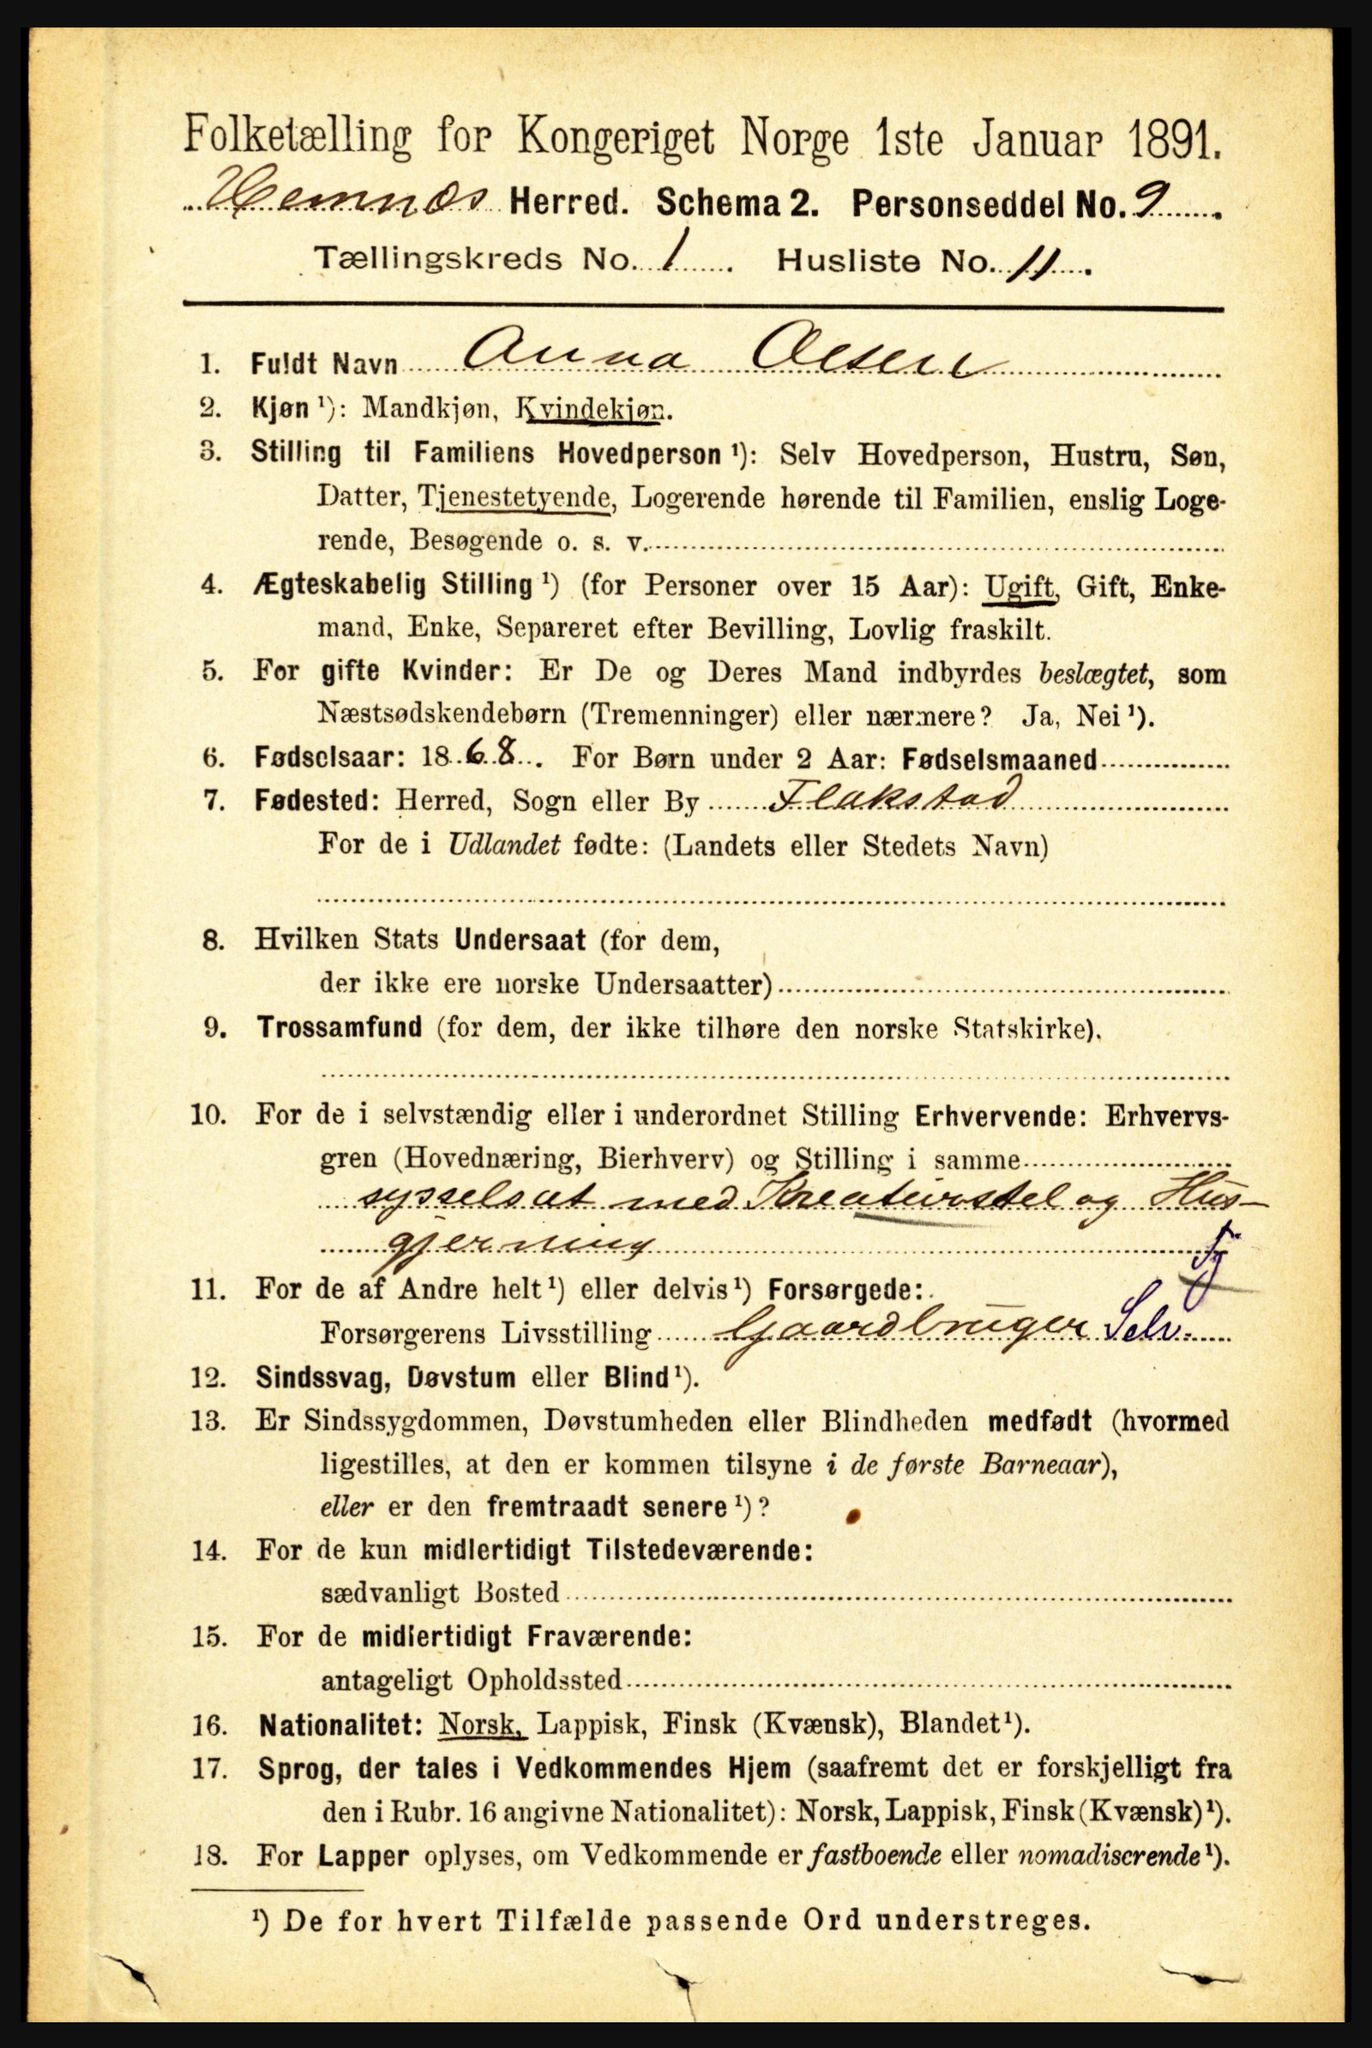 Folketælling for Kongeriget Norge 1ste Januar 1891.
Hemnæs Herred. Schema 2. Personseddel No. 9.
Tællingskreds No. 1. Husliste No. 11.
1. Fuldt Navn Anna Olsen
2. Kjøn ¹): Mandkjøn, Kvindekjøn.
3. Stilling til Familiens Hovedperson ¹): Selv Hovedperson, Hustru, Søn,
Datter, Tjenestetyende, Logerende hørende til Familien, enslig Loge-
rende, Besøgende o. s. v.
4. Ægteskabelig Stilling ¹) (for Personer over 15 Aar): Ugift, Gift, Enke-
mand, Enke, Separeret efter Bevilling, Lovlig fraskilt.
5. For gifte Kvinder: Er De og Deres Mand indbyrdes beslægtet, som
Næstsødskendebørn (Tremenninger) eller nærmere? Ja, Nei ¹).
6. Fødselsaar: 1868. For Børn under 2 Aar: Fødselsmaaned
7. Fødested: Herred, Sogn eller By Flakstad
For de i Udlandet fødte: (Landets eller Stedets Navn)
8. Hvilken Stats Undersaat (for dem,
der ikke ere norske Undersaatter)
9. Trossamfund (for dem, der ikke tilhøre den norske Statskirke).
10. For de i selvstændig eller i underordnet Stilling Erhvervende: Erhvervs-
gren (Hovednæring, Bierhverv) og Stilling i samme
sysselsat med Kreaturstel og Hus-
gjerning Tj
11. For de af Andre helt ¹) eller delvis ¹) Forsørgede:
Forsørgerens Livsstilling Gaardbruger Selv.
12. Sindssvag, Døvstum eller Blind ¹).
13. Er Sindssygdommen, Døvstumheden eller Blindheden medfødt (hvormed
ligestilles, at den er kommen tilsyne i de første Barneaar),
eller er den fremtraadt senere ¹)?
14. For de kun midlertidigt Tilstedeværende:
sædvanligt Bosted
15. For de midlertidigt Fraværende:
antageligt Opholdssted
16. Nationalitet: Norsk, Lappisk, Finsk (Kvænsk), Blandet ¹).
17. Sprog, der tales i Vedkommendes Hjem (saafremt det er forskjelligt fra
den i Rubr. 16 angivne Nationalitet): Norsk, Lappisk, Finsk (Kvænsk) ¹).
18. For Lapper oplyses, om Vedkommende er fastboende eller nomadiserende ¹).
¹) De for hvert Tilfælde passende Ord understreges.